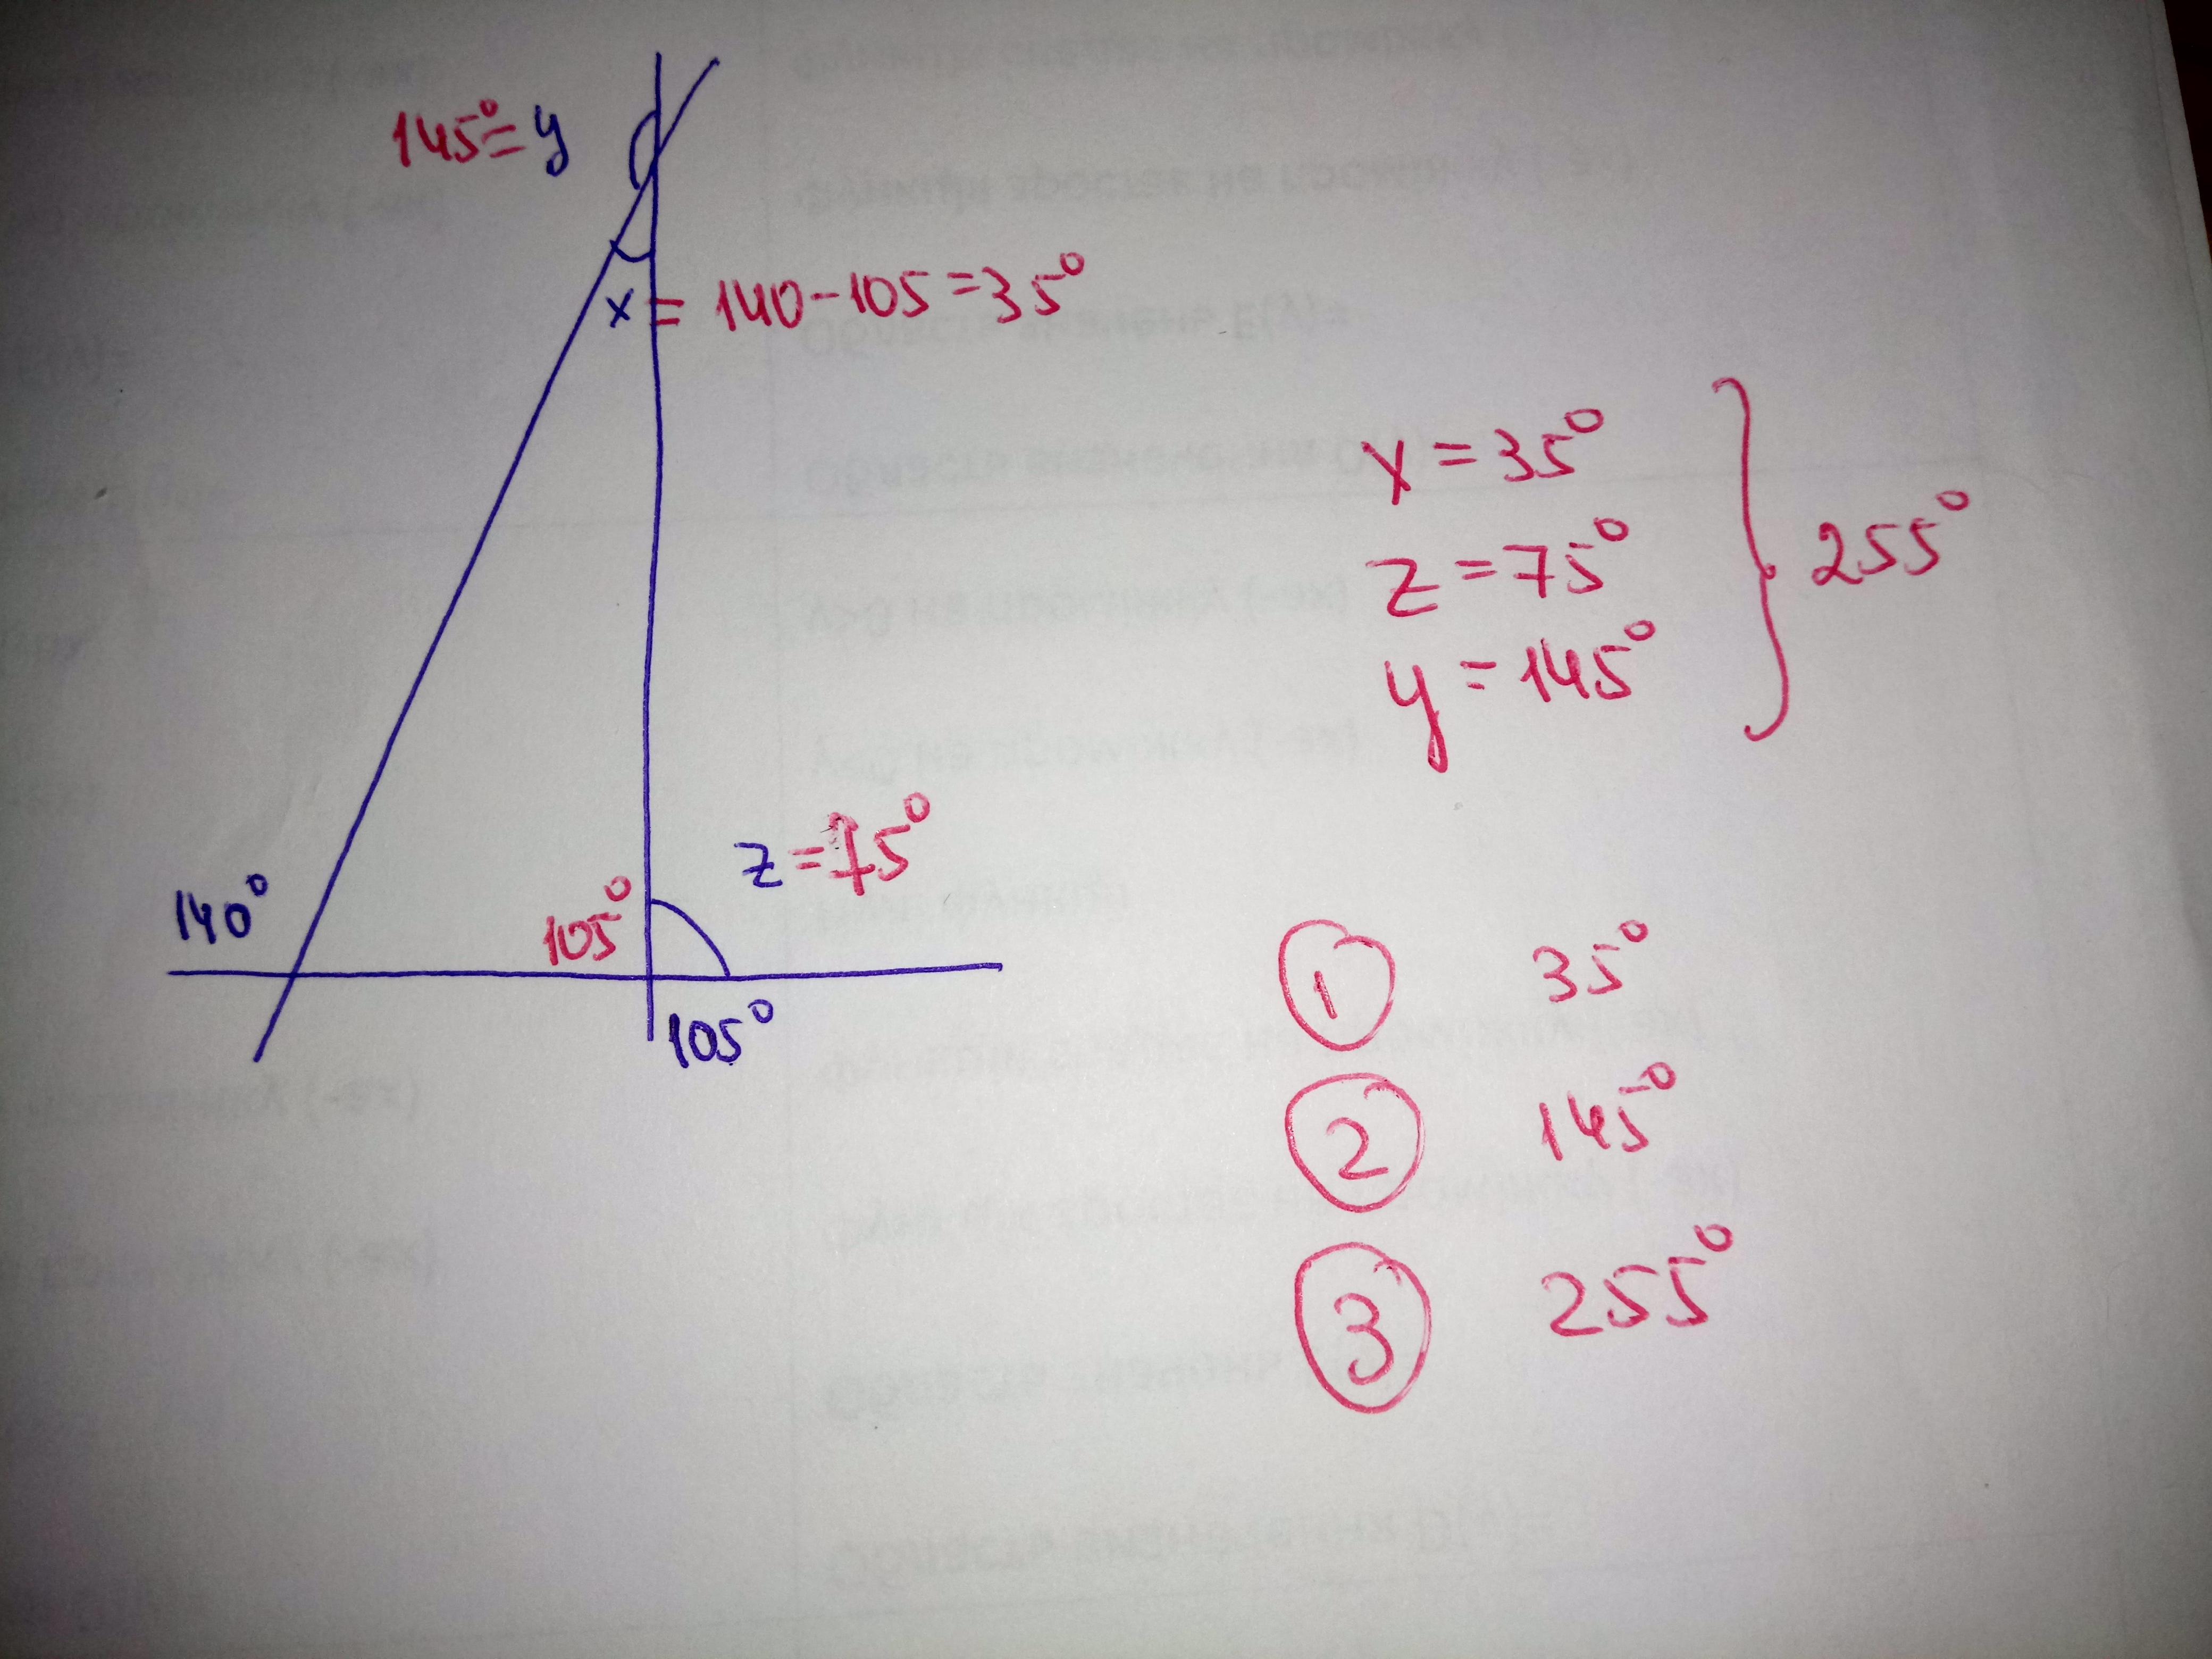 145°= y
x = 140-105=35°
x = 35°
z = 75°
y = 145°
255°
z =75°
140°
105°
105°
1 35°
2 145°
3 255°